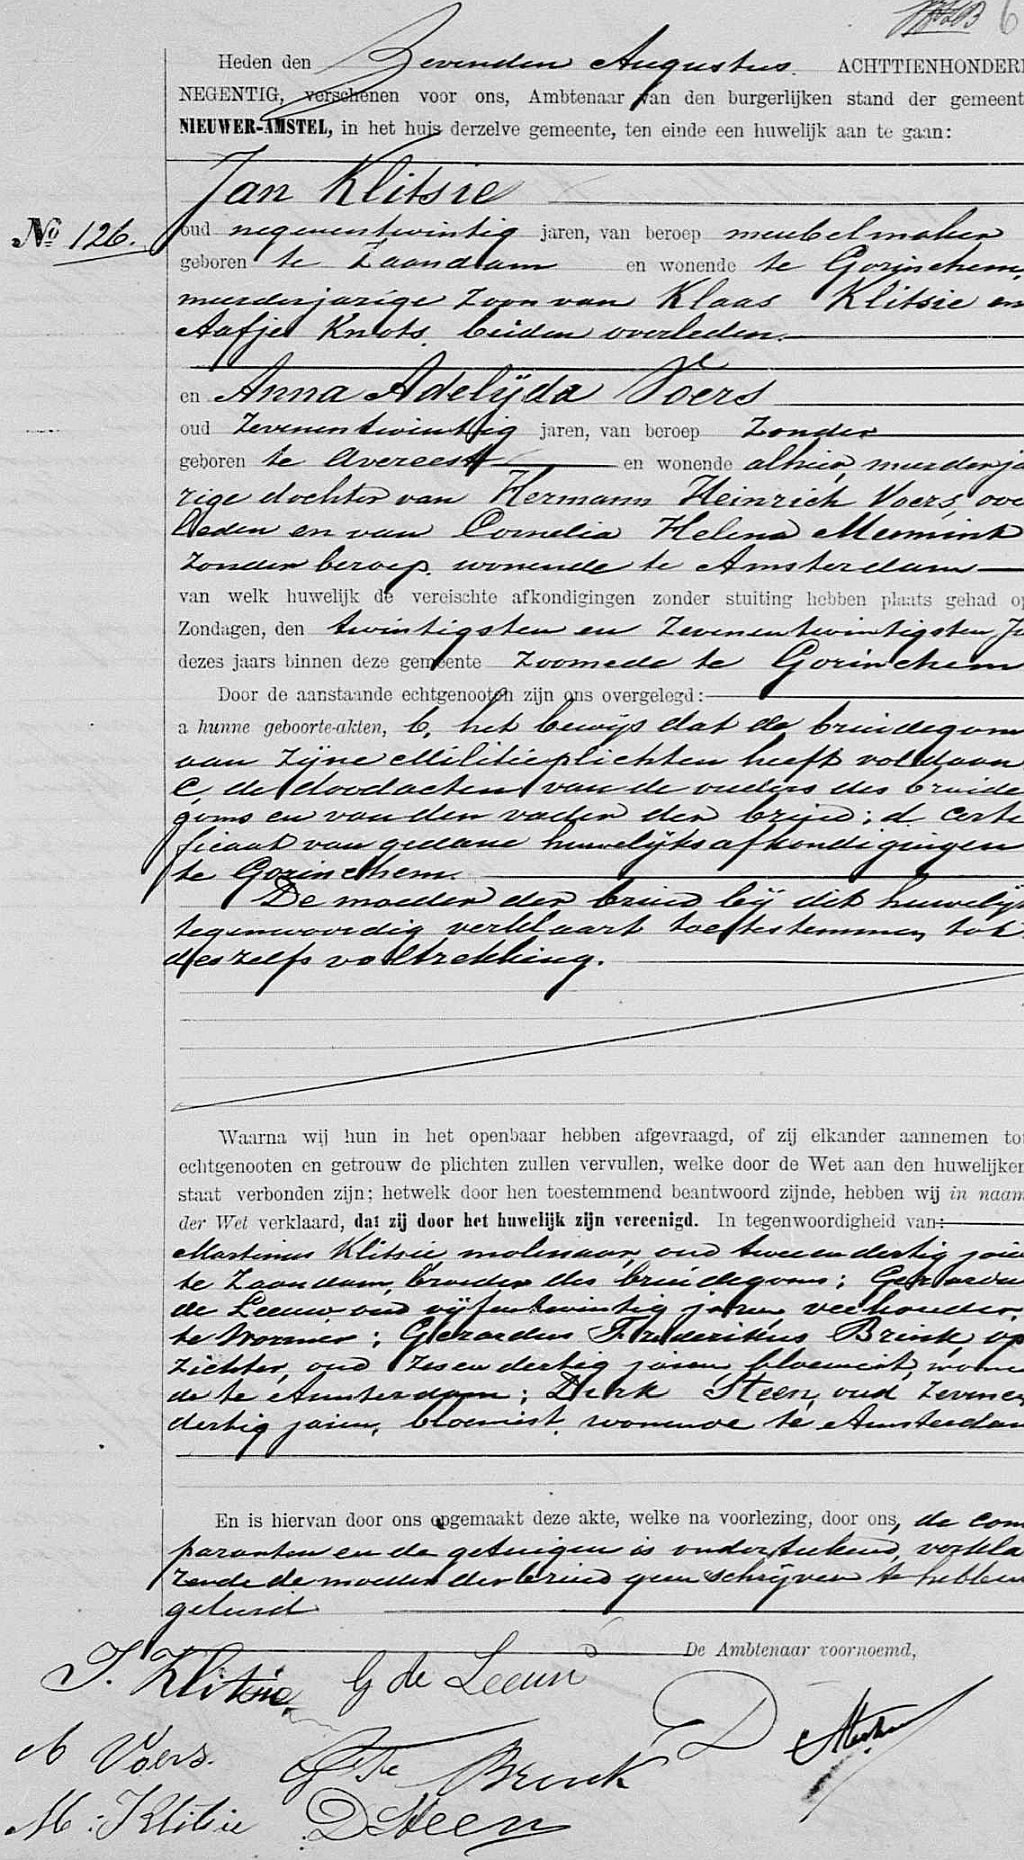 Heden den Zevenden Augustus. ACHTTIENHONDERD
NEGENTIG, verschenen voor ons, Ambtenaar van den burgerlijken stand der gemeent
NIEUWER-AMSTEL, in het huis derzelve gemeente, ten einde een huwelijk aan te gaan:
Jan Klitsie
No 126.
oud negenentwintig jaren, van beroep meubelmaker
geboren te Zaandam en wonende te Gorinchem,
meerderjarige zoon van Klaas Klitsie en
Aafje Knots, beiden overleden.
en Anna Adelijda Voers
oud zevenentwintig jaren, van beroep zonder
geboren te Avereest en wonende alhier, meerderja
rige dochter van Hermann Heinrich Voers, ove
leden en van Cornelia Helena Memmink
zonder beroep, wonende te Amsterdam
van welk huwelijk de vereischte afkondigingen zonder stuiting hebben plaats gehad op
Zondagen, den twintigsten en zevenentwintigsten Ju
dezes jaars binnen deze gemeente zoomede te Gorinchem
Door de aanstaande echtgenooten zijn ons overgelegd:
a hunne geboorte-akten, b, het bewijs dat de bruidegom
aan zijne Militieplichten heeft voldaan
c, de doodacten van de ouders des bruide
goms en van den vader der bruid; d. certi
ficaat van gedane huwelijksafkondigingen
te Gorinchem.
De moeder der bruid bij dit huwelijk
tegenwoordig verklaart toetestemmen tot
deszelfs voltrekking.
Waarna wij hun in het openbaar hebben afgevraagd, of zij elkander aannemen tot
echtgenooten en getrouw de plichten zullen vervullen, welke door de Wet aan den huwelijken
staat verbonden zijn; hetwelk door hen toestemmend beantwoord zijnde, hebben wij in naam
der Wet verklaard, dat zij door het huwelijk zijn vereenigd. In tegenwoordigheid van:
Martinus Klitsie, molenaar, oud tweeendertig jare
te Zaandam, broeder des bruidegoms; Gerardu
de Leeuw, oud vijfentwintig jaren, veehouder,
te Wormer; Gerardus Frederikus Brink, op
zichter, oud zesendertig jaren, bloemist, wonen
de te Amsterdam; Dirk Steen, oud zevenen
dertig jaren, bloemist, wonende te Amsterdam
En is hiervan door ons opgemaakt deze akte, welke na voorlezing, door ons, de com
paranten en de getuigen is onderteekend, verkla
rende de moeder der bruid geen schrijven te hebben
geleerd
De Ambtenaar voornoemd,
J. Klitsie G de Leeuw
A Voers. Brink
M. Klitsie D Steen